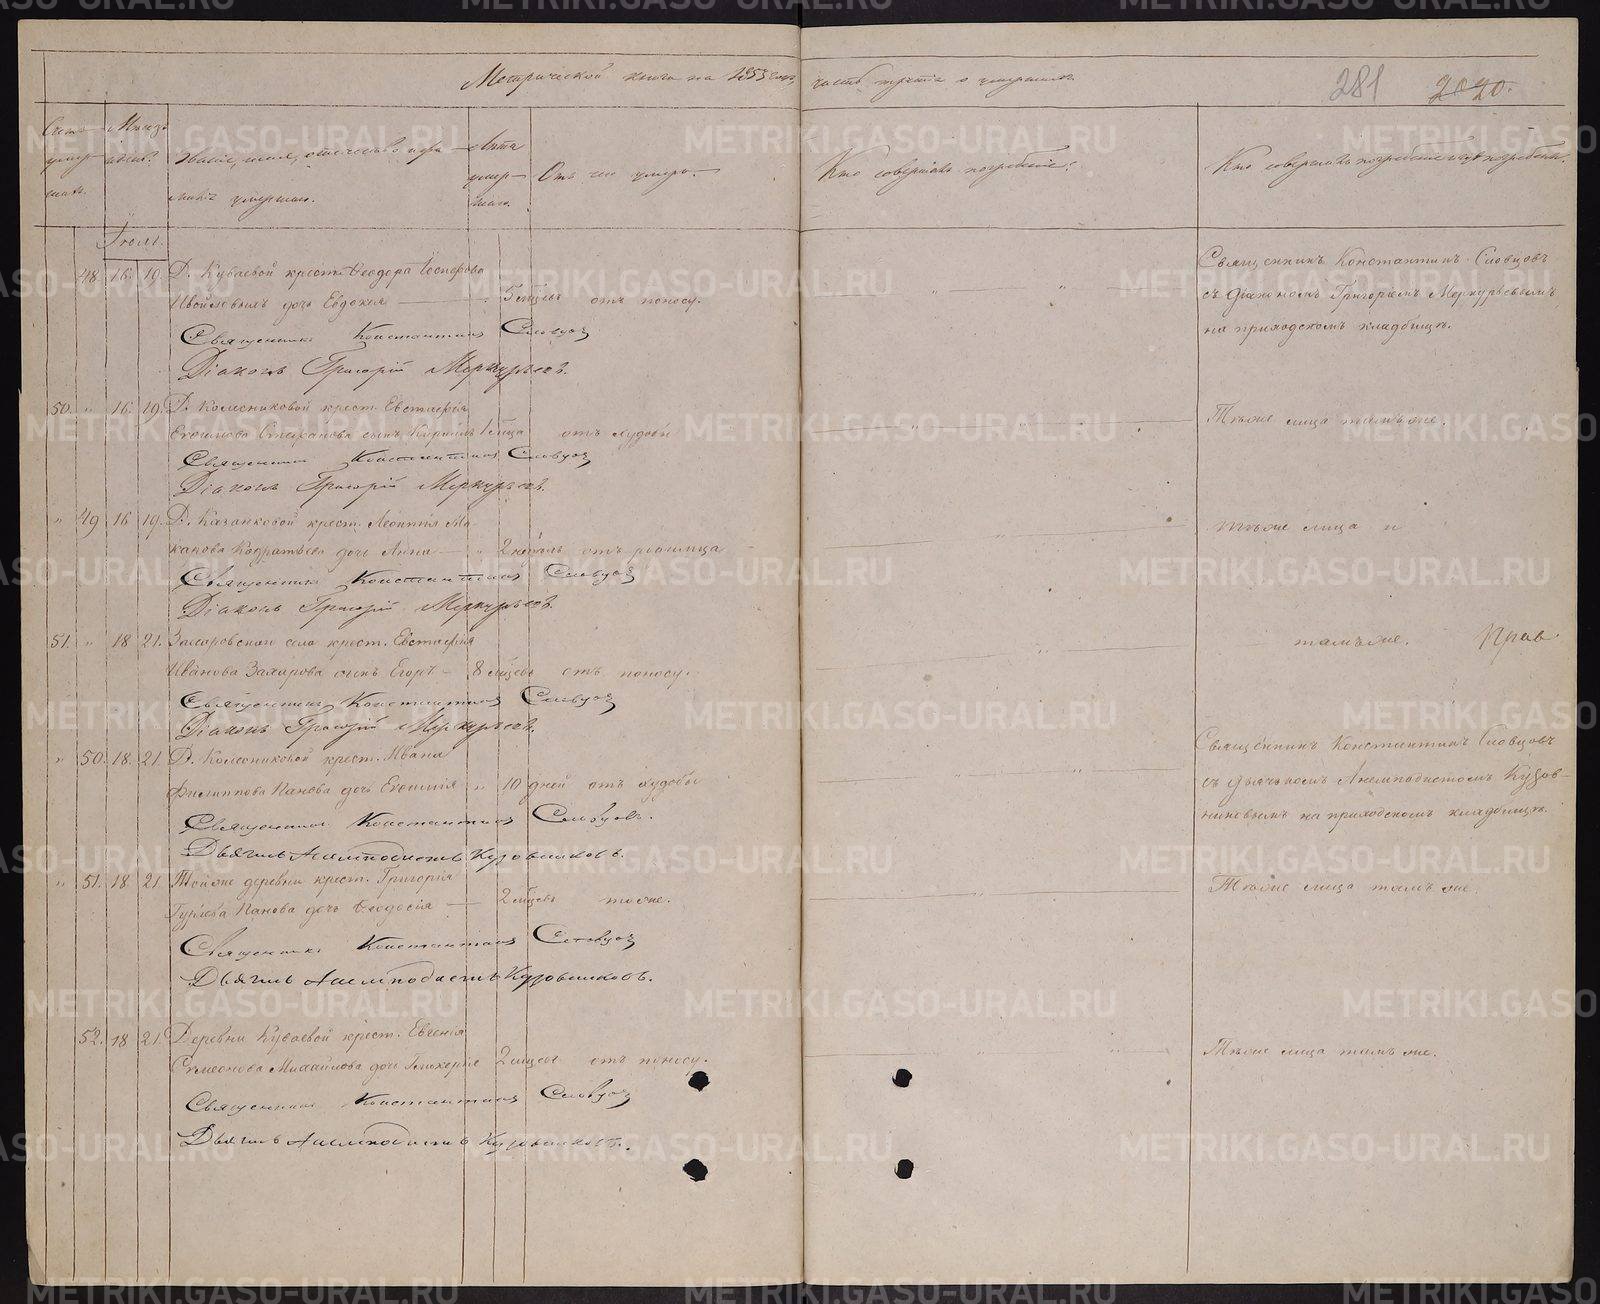 Метрической книги на 1853 годъ, часть третiя о умершихъ.
281 2020.
Счетъ умершихъ.
Мѣсяцъ и день.
Званiе, имя, отечество и фамилiя умершаго.
Лѣта умершаго.
Отъ чего умеръ.
Кто совершалъ погребенiе?
Кто совершалъ погребенiе и гдѣ погребены.
Iюль.
48. 16. 19. Д. Куваевой крест. Ѳеодора
дочь Евдокiя — 5 мѣсяцъ отъ поносу.
Священникъ Константинъ Словцовъ
съ Дiакономъ Григорiемъ Меркурьевымъ
на приходскомъ кладбищѣ.
Священникъ Константинъ Словцов
Дiаконъ Григорiй Меркурьевъ.
50. " 16. 19. Д. Колесниковой крест. Евстафiя
сынъ Кириллъ 1 мѣсяца отъ худобы
Тѣже лица тамъ же.
Священникъ Константинъ Словцов
Дiаконъ Григорiй Меркурьевъ.
" 49 16 19. Д. Казанковой крест. Леонтiя Ма-
дочь Анна — " 2 недѣль отъ родимца
Тѣже лица и
Священникъ Константинъ Словцов
Дiаконъ Григорiй Меркурьевъ.
51. " 18 21. села крест. Евстафiя
тамъ же. Прав.
Иванова Захарова сынъ Егоръ — 8 мѣсяцъ отъ поносу.
Священникъ Константинъ Словцов
Дiаконъ Григорiй Меркурьевъ.
" 50. 18. 21. Д. Колесниковой крест. Ивана
Филиппова Панова дочь Евѳимiя " 10 дней отъ худобы
Священникъ Константинъ Словцовъ
съ Дьячкомъ Анемподистомъ Кузов-
никовымъ на приходскомъ кладбищѣ.
Священникъ Константинъ Словцовъ.
Дьячекъ Анемподистъ Кузовниковъ.
" 51. 18 21. Той же деревни крест. Григорiя
Гурьева Панова дочь Ѳеодосiя — 2 мѣсяцъ тоже.
Тѣже лица тамъ же.
Священникъ Константинъ Словцов
Дьячекъ Анемподистъ Кузовниковъ.
52. 18 21. Деревни Куваевой крест. Евгенiя
Симеонова Михайлова дочь Гликерiя 2 мѣсяцъ отъ поносу.
Тѣже лица тамъ же.
Священникъ Константинъ Словцов
Дьячекъ Анемподистъ Кузовниковъ.
METRIKI.GASO-URAL.RU